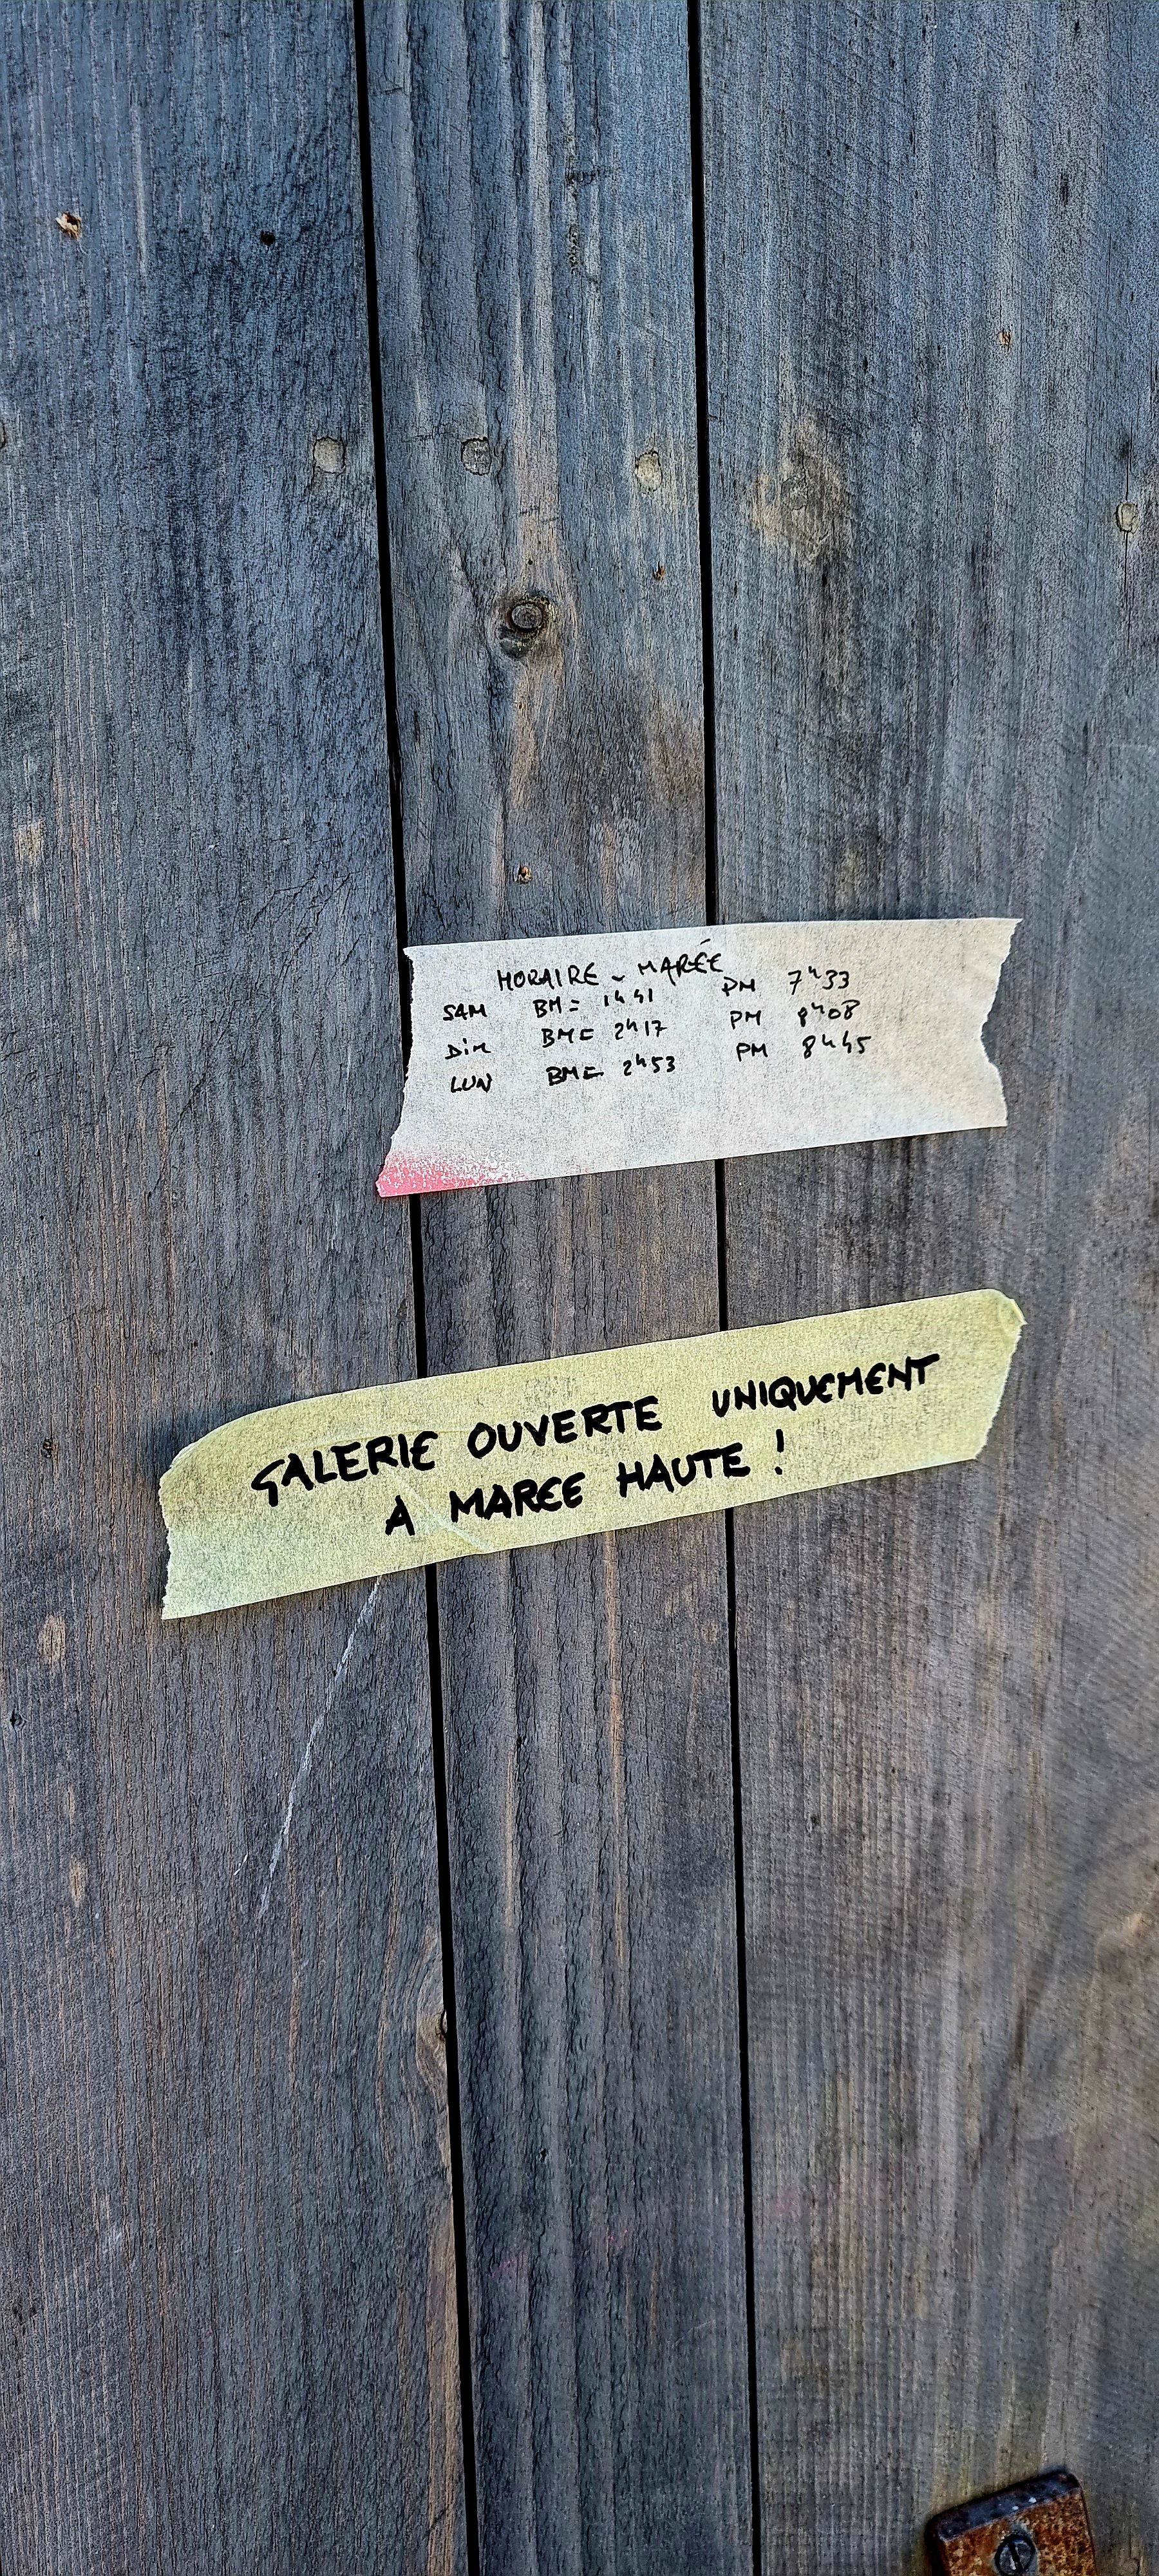 HORAIRE - MARÉE
SAM BM = 1h41 PM 7h33
DiM BM = 2h17 PM 8h08
LUN BM = 2h53 PM 8h45
GALERIE OUVERTE UNIQUEMENT
A MAREE HAUTE !